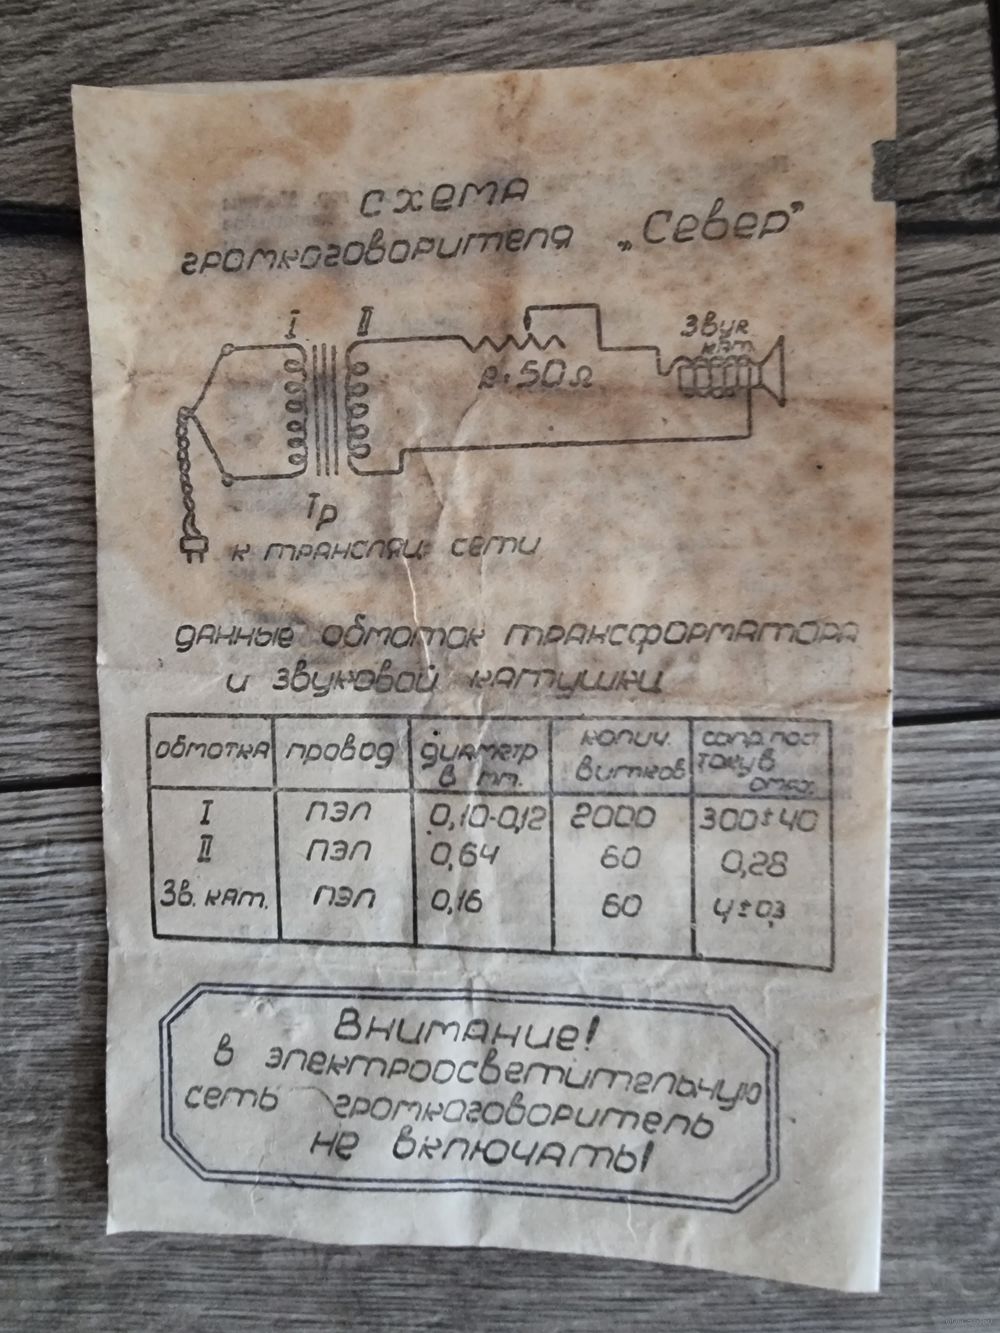 Схема
громкоговорителя „Север”
I II
Звук.
кат.
R=50Ω
Тр
к трансляц. сети
данные обмоток трансформатора
и звуковой катушки
обмотка провод диаметр в мм. колич. витков сопр. пост току в омах.
I ПЭЛ 0,10-0,12 2000 300±40
II ПЭЛ 0,64 60 0,28
Зв. кат. ПЭЛ 0,16 60 4±0,3
Внимание!
в электроосветительную
сеть громкоговоритель
не включать!